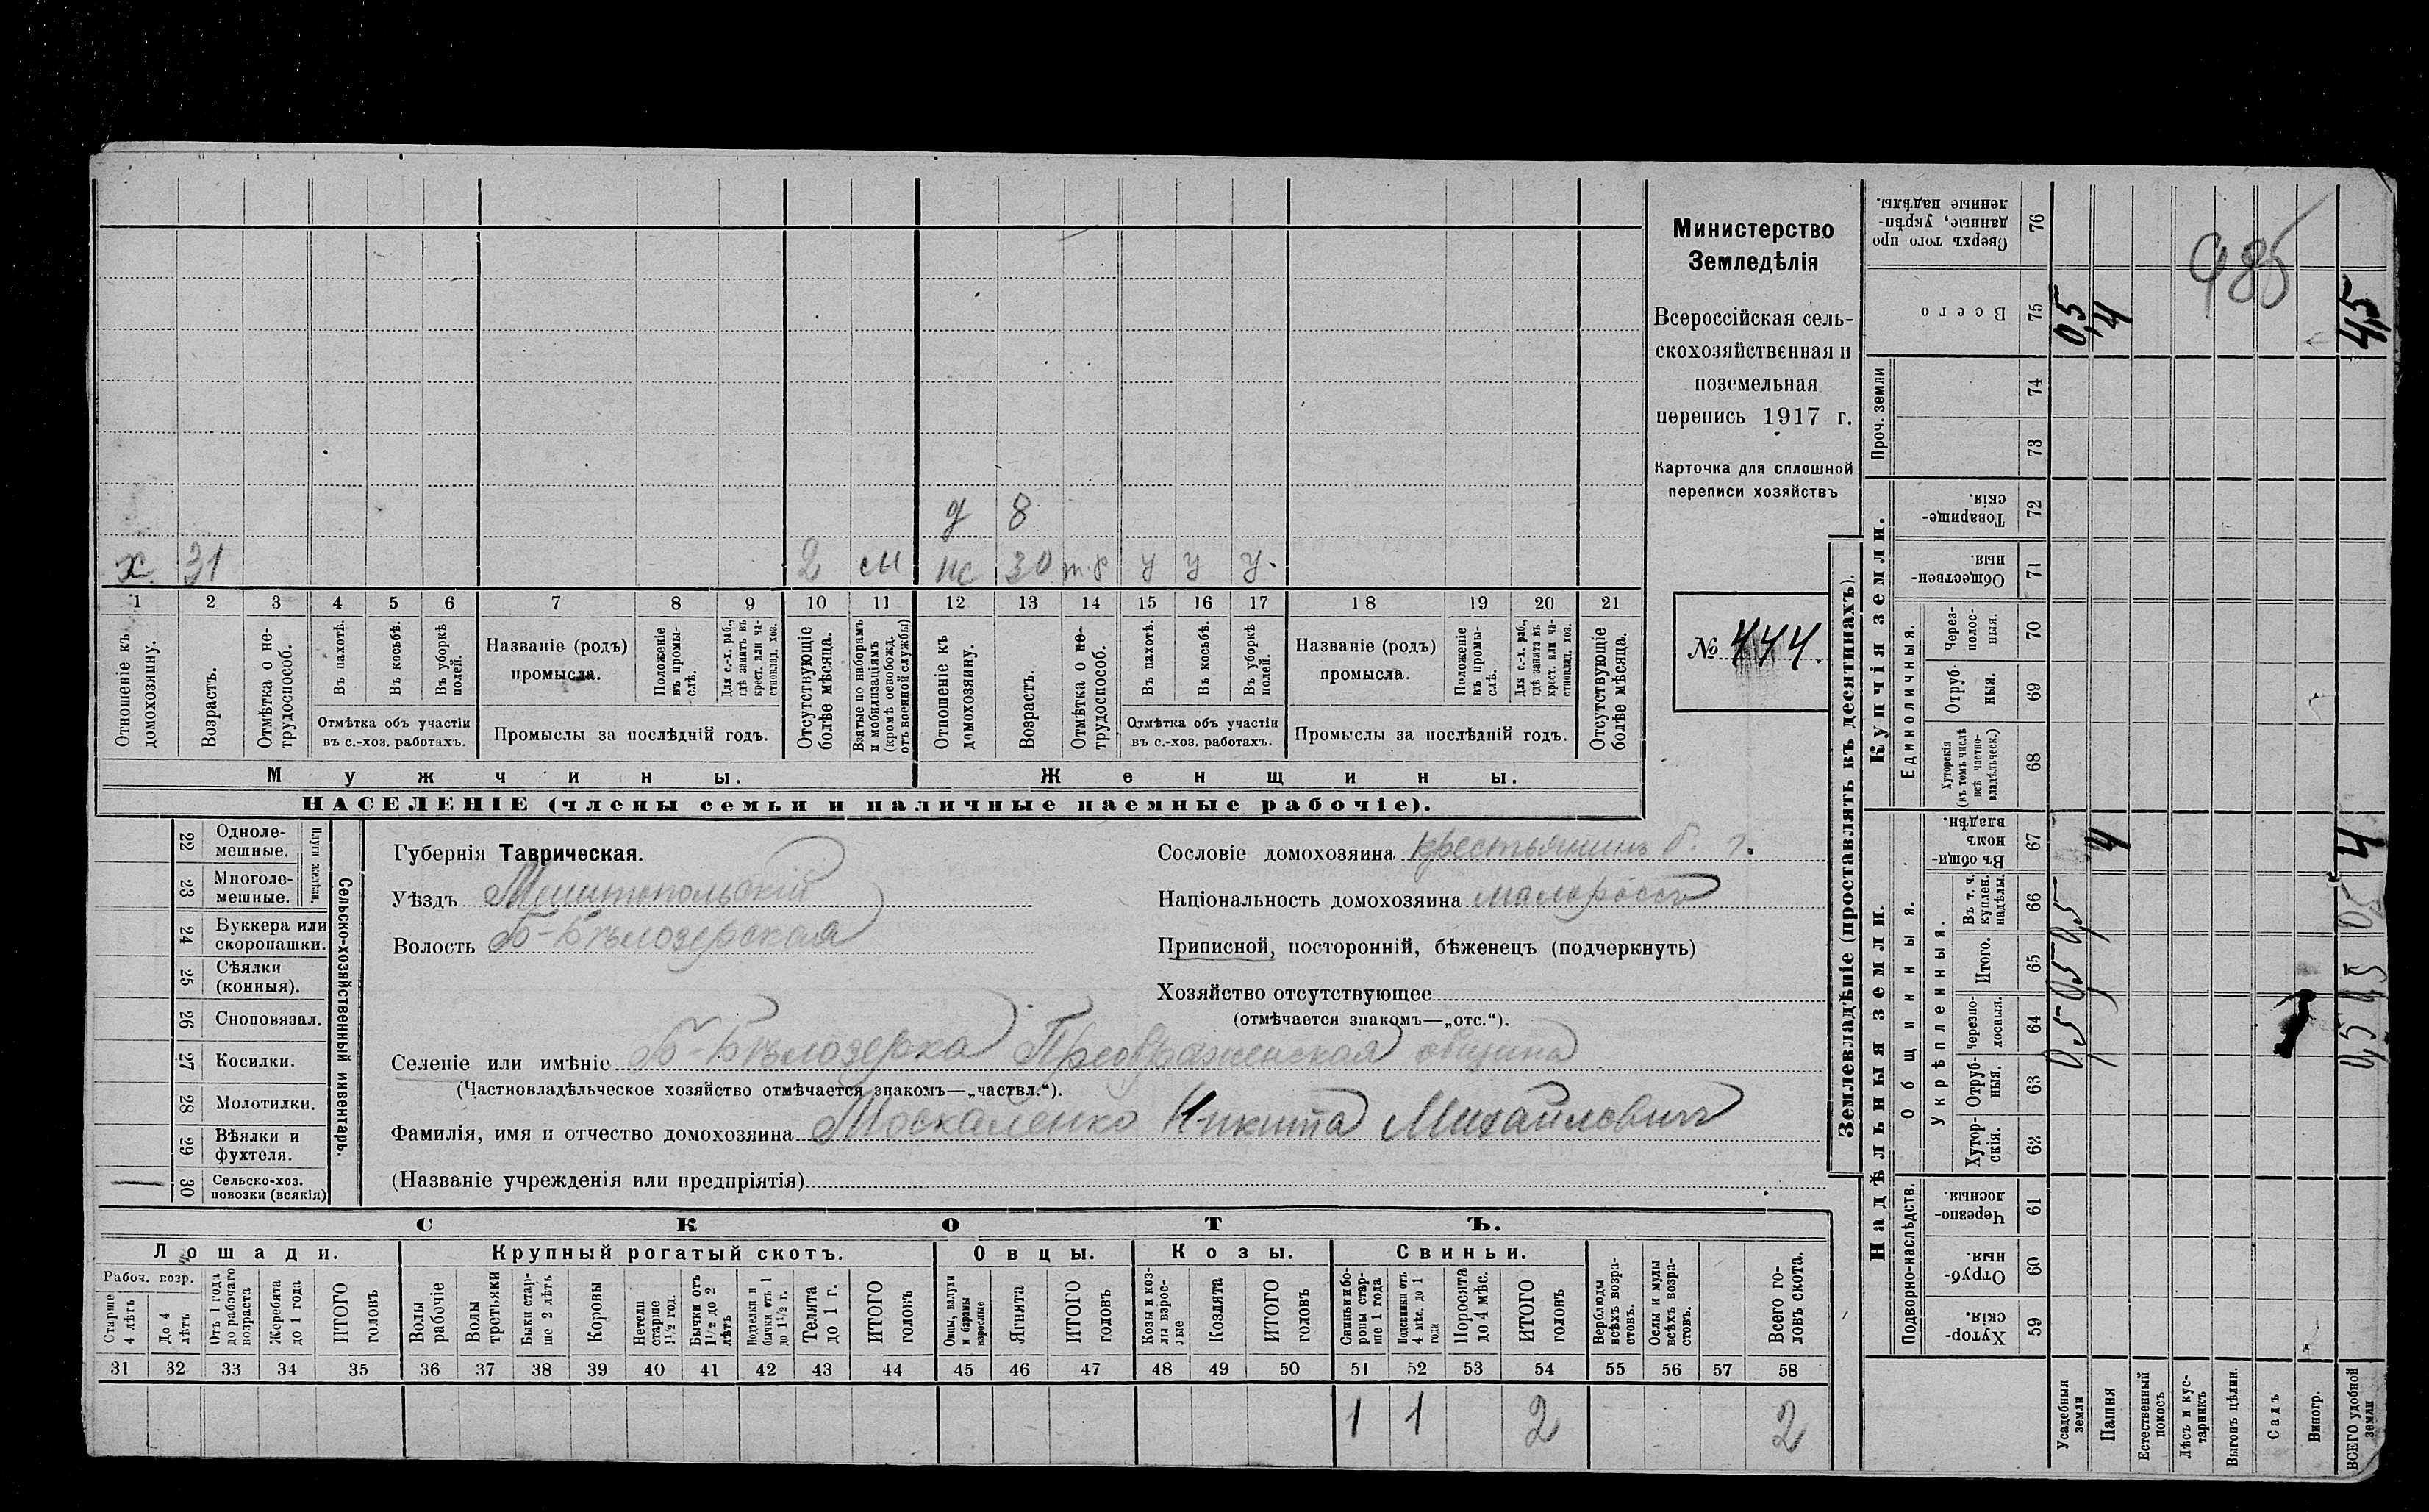 х 31 2 м
д 8
жс 30 т.р у у у.
1 2 3 4 5 6 7 8 9 10 11 12 13 14 15 16 17 18 19 20 21
Отношеніе къ домохозяину.
Возрастъ.
Отмѣтка о не-
трудоспособ.
Въ пахотѣ.
Въ косьбѣ.
Въ уборкѣ
полей.
Отмѣтка объ участіи
въ с.-хоз. работахъ.
Названіе (родъ)
промысла.
Положеніе
въ промы-
слѣ.
Для с.-х. раб.,
гдѣ занятъ въ
крест. или ча-
стновлад. хоз.
Промыслы за послѣдній годъ.
Отсутствующіе
болѣе мѣсяца.
Взятые по наборамъ
и мобилизаціямъ
(кромѣ освобожд.
отъ военной службы)
Отношеніе къ
домохозяину.
Возрастъ.
Отмѣтка о не-
трудоспособ.
Въ пахотѣ.
Въ косьбѣ.
Въ уборкѣ
полей.
Отмѣтка объ участіи
въ с.-хоз. работахъ.
Названіе (родъ)
промысла.
Положеніе
въ промы-
слѣ.
Для с.-х. раб.,
гдѣ занята въ
крест. или ча-
стновлад. хоз.
Промыслы за послѣдній годъ.
Отсутствующіе
болѣе мѣсяца.
Мужчины.
Женщины.
НАСЕЛЕНІЕ (члены семьи и наличные наемные рабочіе).
Министерство
Земледѣлія
Всероссійская сель-
скохозяйственная и
поземельная
перепись 1917 г.
Карточка для сплошной
переписи хозяйствъ
№ 444.
Сельско-хозяйственный инвентарь.
Плуги желѣзн.
22 Одноле-
мешные.
23 Многоле-
мешные.
24 Буккера или
скоропашки.
25 Сѣялки
(конныя).
26 Сноповязал.
27 Косилки.
28 Молотилки.
29 Вѣялки и
фухтеля.
30 Сельско-хоз.
повозки (всякія)
Губернія Таврическая.
Уѣздъ Мелитопольскій
Волость Б-Бѣлозерская
Селеніе или имѣніе Б-Бѣлозерка Преображенская община
(Частновладѣльческое хозяйство отмѣчается знакомъ—„частвл.“).
Фамилія, имя и отчество домохозяина Москаленко Никита Михайлович
(Названіе учрежденія или предпріятія)
Сословіе домохозяина крестьянинъ б. г.
Національность домохозяина малоросъ
Приписной, посторонній, бѣженецъ (подчеркнуть)
Хозяйство отсутствующее
(отмѣчается знакомъ—„отс.“).
СКОТЪ.
Лошади.
Крупный рогатый скотъ.
Овцы.
Козы.
Свиньи.
Рабоч. возр.
Старше
4 лѣтъ
До 4
лѣтъ
Отъ 1 года
до рабочаго
возраста
Жеребята
до 1 года
ИТОГО
головъ
Волы
рабочіе
Волы
третьяки
Быки стар-
ше 2 лѣтъ
Коровы
Нетели
старше
1½ год.
Бычки отъ
1½ до 2
лѣтъ
Телки и
бычки отъ 1
до 1½ г.
Телята
до 1 г.
ИТОГО
головъ
Овцы, валухи
и бараны
взрослые
Ягнята
ИТОГО
головъ
Козы и коз-
лы взрос-
лые
Козлята
ИТОГО
головъ
Свиньи и бо-
ровы стар-
ше 1 года
Подсвинки отъ
4 мѣс. до 1
года
Поросята
до 4 мѣс.
ИТОГО
головъ
Верблюды
всѣхъ возра-
стовъ.
Ослы и мулы
всѣхъ возра-
стовъ.
Всего го-
ловъ скота.
31 32 33 34 35 36 37 38 39 40 41 42 43 44 45 46 47 48 49 50 51 52 53 54 55 56 57 58
1 1 2 2
Землевладѣніе (проставлять въ десятинахъ).
Надѣльныя земли.
Купчія земли.
Проч. земли
Подворно-наслѣдств.
Общинныя.
Укрѣпленныя.
Единоличныя.
Хутор-
скія. 59
Отруб-
ныя. 60
Черезпо-
лосныя. 61
Хутор-
скія. 62
Отруб-
ныя. 63
Черезпо-
лосныя. 64
Итого. 65
Въ т. ч.
куплен.
надѣлы. 66
Въ общи-
номъ
владѣн. 67
Хуторскія
(въ томъ числѣ
всѣ частно-
владѣльческ.) 68
Отруб
ныя. 69
Через-
полос-
ныя. 70
Обществен-
ныя. 71
Товарище-
скія. 72
73
74
Всего 75
Сверхъ того про
данные, укрѣп-
ленные надѣлы. 76
Усадебныя
земли 0,5 0,5 0,5 0,5
Пашня 4 4
Естественный
покосъ
Лѣсъ и кус-
тарникъ
Выгонъ цѣлин.
Садъ
Виногр.
ВСЕГО удобной
земли 0,5 0,5 0,5 4 4,5